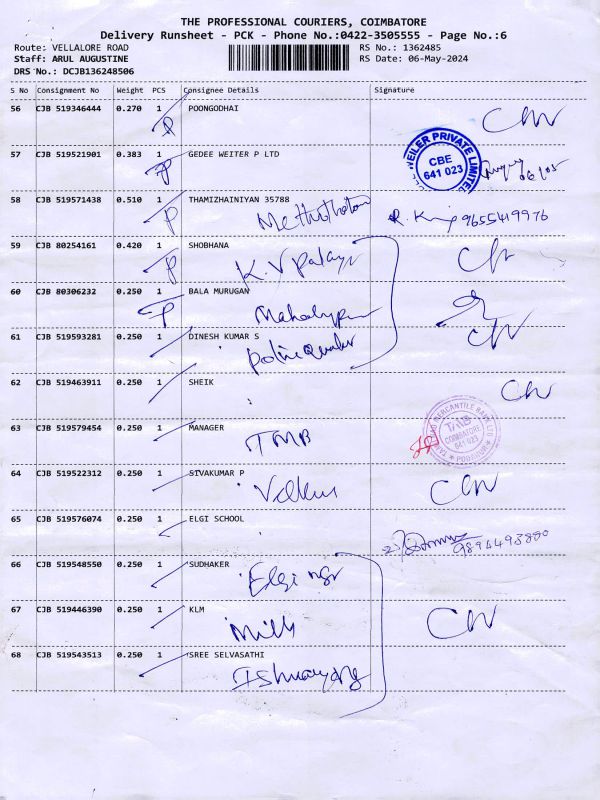 THE PROFESSIONAL COURIERS, COIMBATORE
Delivery Runsheet - PCK - Phone No.:0422-3505555 - Page No.:6
Route: VELLALORE ROAD RS No.: 1362485
Staff: ARUL AUGUSTINE RS Date: 06-May-2024
DRS No.: DCJB136248506
S No Consignment No Weight PCS Consignee Details Signature
56 CJB 519346444 0.270 1 POONGODHAI
P
57 CJB 519521901 0.383 1 GEDEE WEITER P LTD
WEILER PRIVATE LIMITED
CBE
641 023
P
58 CJB 519571438 0.510 1 THAMIZHAINIYAN 35788
P R. 9655419976
59 CJB 80254161 0.420 1 SHOBHANA
P K.V Palayr
60 CJB 80306232 0.250 1 BALA MURUGAN
P
61 CJB 519593281 0.250 1 DINESH KUMAR S
62 CJB 519463911 0.250 1 SHEIK
63 CJB 519579454 0.250 1 MANAGER
TMB
TAMILNAD MERCANTILE BANK LTD
TMB
COIMBATORE
641 023
PODANUR
64 CJB 519522312 0.250 1 SIVAKUMAR P
65 CJB 519576074 0.250 1 ELGI SCHOOL
66 CJB 519548550 0.250 1 SUDHAKER
Elgi ngr
67 CJB 519446390 0.250 1 KLM
Mills
68 CJB 519543513 0.250 1 SREE SELVASATHI